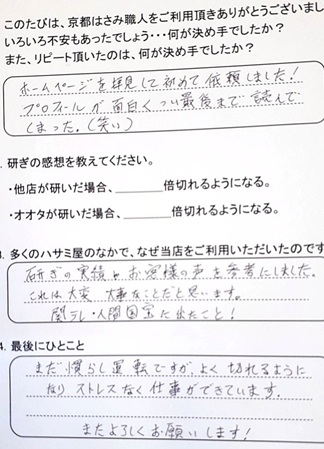 このたびは、京都はさみ職人をご利用頂きありがとうございまし
いろいろ不安もあったでしょう・・・何が決め手でしたか？
また、リピート頂いたのは、何が決め手でしたか？
ホームページを拝見して初めて依頼しました！
プロフィールが面白くつい最後まで読んで
しまった。(笑い)
. 研ぎの感想を教えてください。
・他店が研いだ場合、______倍切れるようになる。
・オオタが研いだ場合、______倍切れるようになる。
3. 多くのハサミ屋のなかで、なぜ当店をご利用いただいたのです
研ぎの実績とお客様の声を参考にしました。
これは大変大事なことだと思います。
関テレ・人間国宝に出たこと！
4. 最後にひとこと
まだ慣らし運転ですがよく切れるように
なりストレスなく仕事ができています。
またよろしくお願いします！